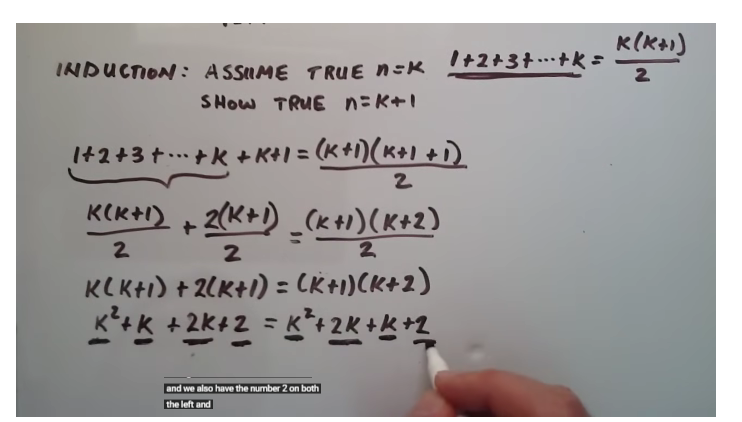 INDUCTION: ASSUME TRUE n=K 1+2+3+···+K = K(K+1)/2
SHOW TRUE n=K+1
1+2+3+···+K +K+1 = (K+1)(K+1+1)/2
K(K+1)/2 + 2(K+1)/2 = (K+1)(K+2)/2
K(K+1) + 2(K+1) = (K+1)(K+2)
K²+K +2K+2 = K²+2K+K+2
and we also have the number 2 on both
the left and